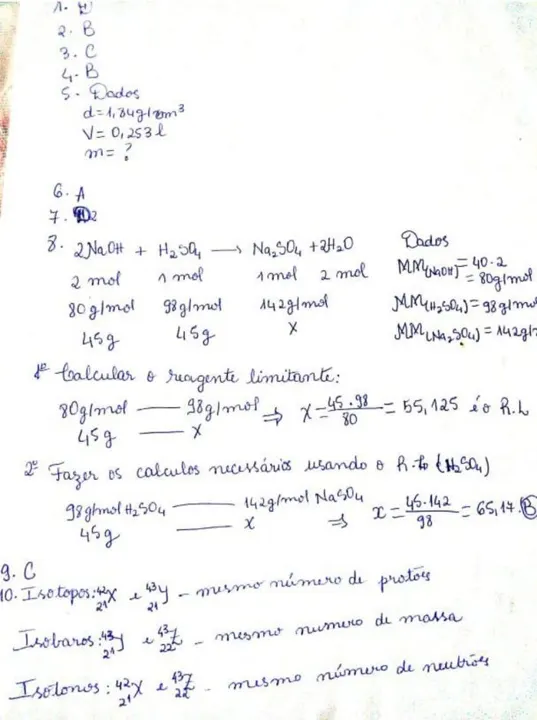 2. B
3. C
4. B
5. Dados
d=1,84g/cm³
V= 0,253l
m= ?
6. A
7.
8. 2NaOH + H₂SO₄ → Na₂SO₄ + 2H₂O
2 mol 1 mol 1 mol 2 mol
80g/mol 98g/mol 142g/mol
45g 45g X
Dados
MM(NaOH)= 40·2
= 80g/mol
MM(H₂SO₄) = 98g/mol
MM(Na₂SO₄) = 142g/
1º Calcular o reagente limitante:
80g/mol — 98g/mol ⇒ X = 45·98/80 = 55,125 é o R.L
45g — X
2º Fazer os calculos necessários usando o R.L (H₂SO₄)
98g/mol H₂SO₄ — 142g/mol NaSO₄
45g — x ⇒ x = 45·142/98 = 65,17. B
9. C
10. Isotopos: ⁴²₂₁X e ⁴³₂₁Y - mesmo número de protões
Isobaros: ⁴³₂₁Y e ⁴³₂₂Z - mesmo numero de massa
Isotonos: ⁴²₂₁X e ⁴³₂₂Z - mesmo número de neutrões